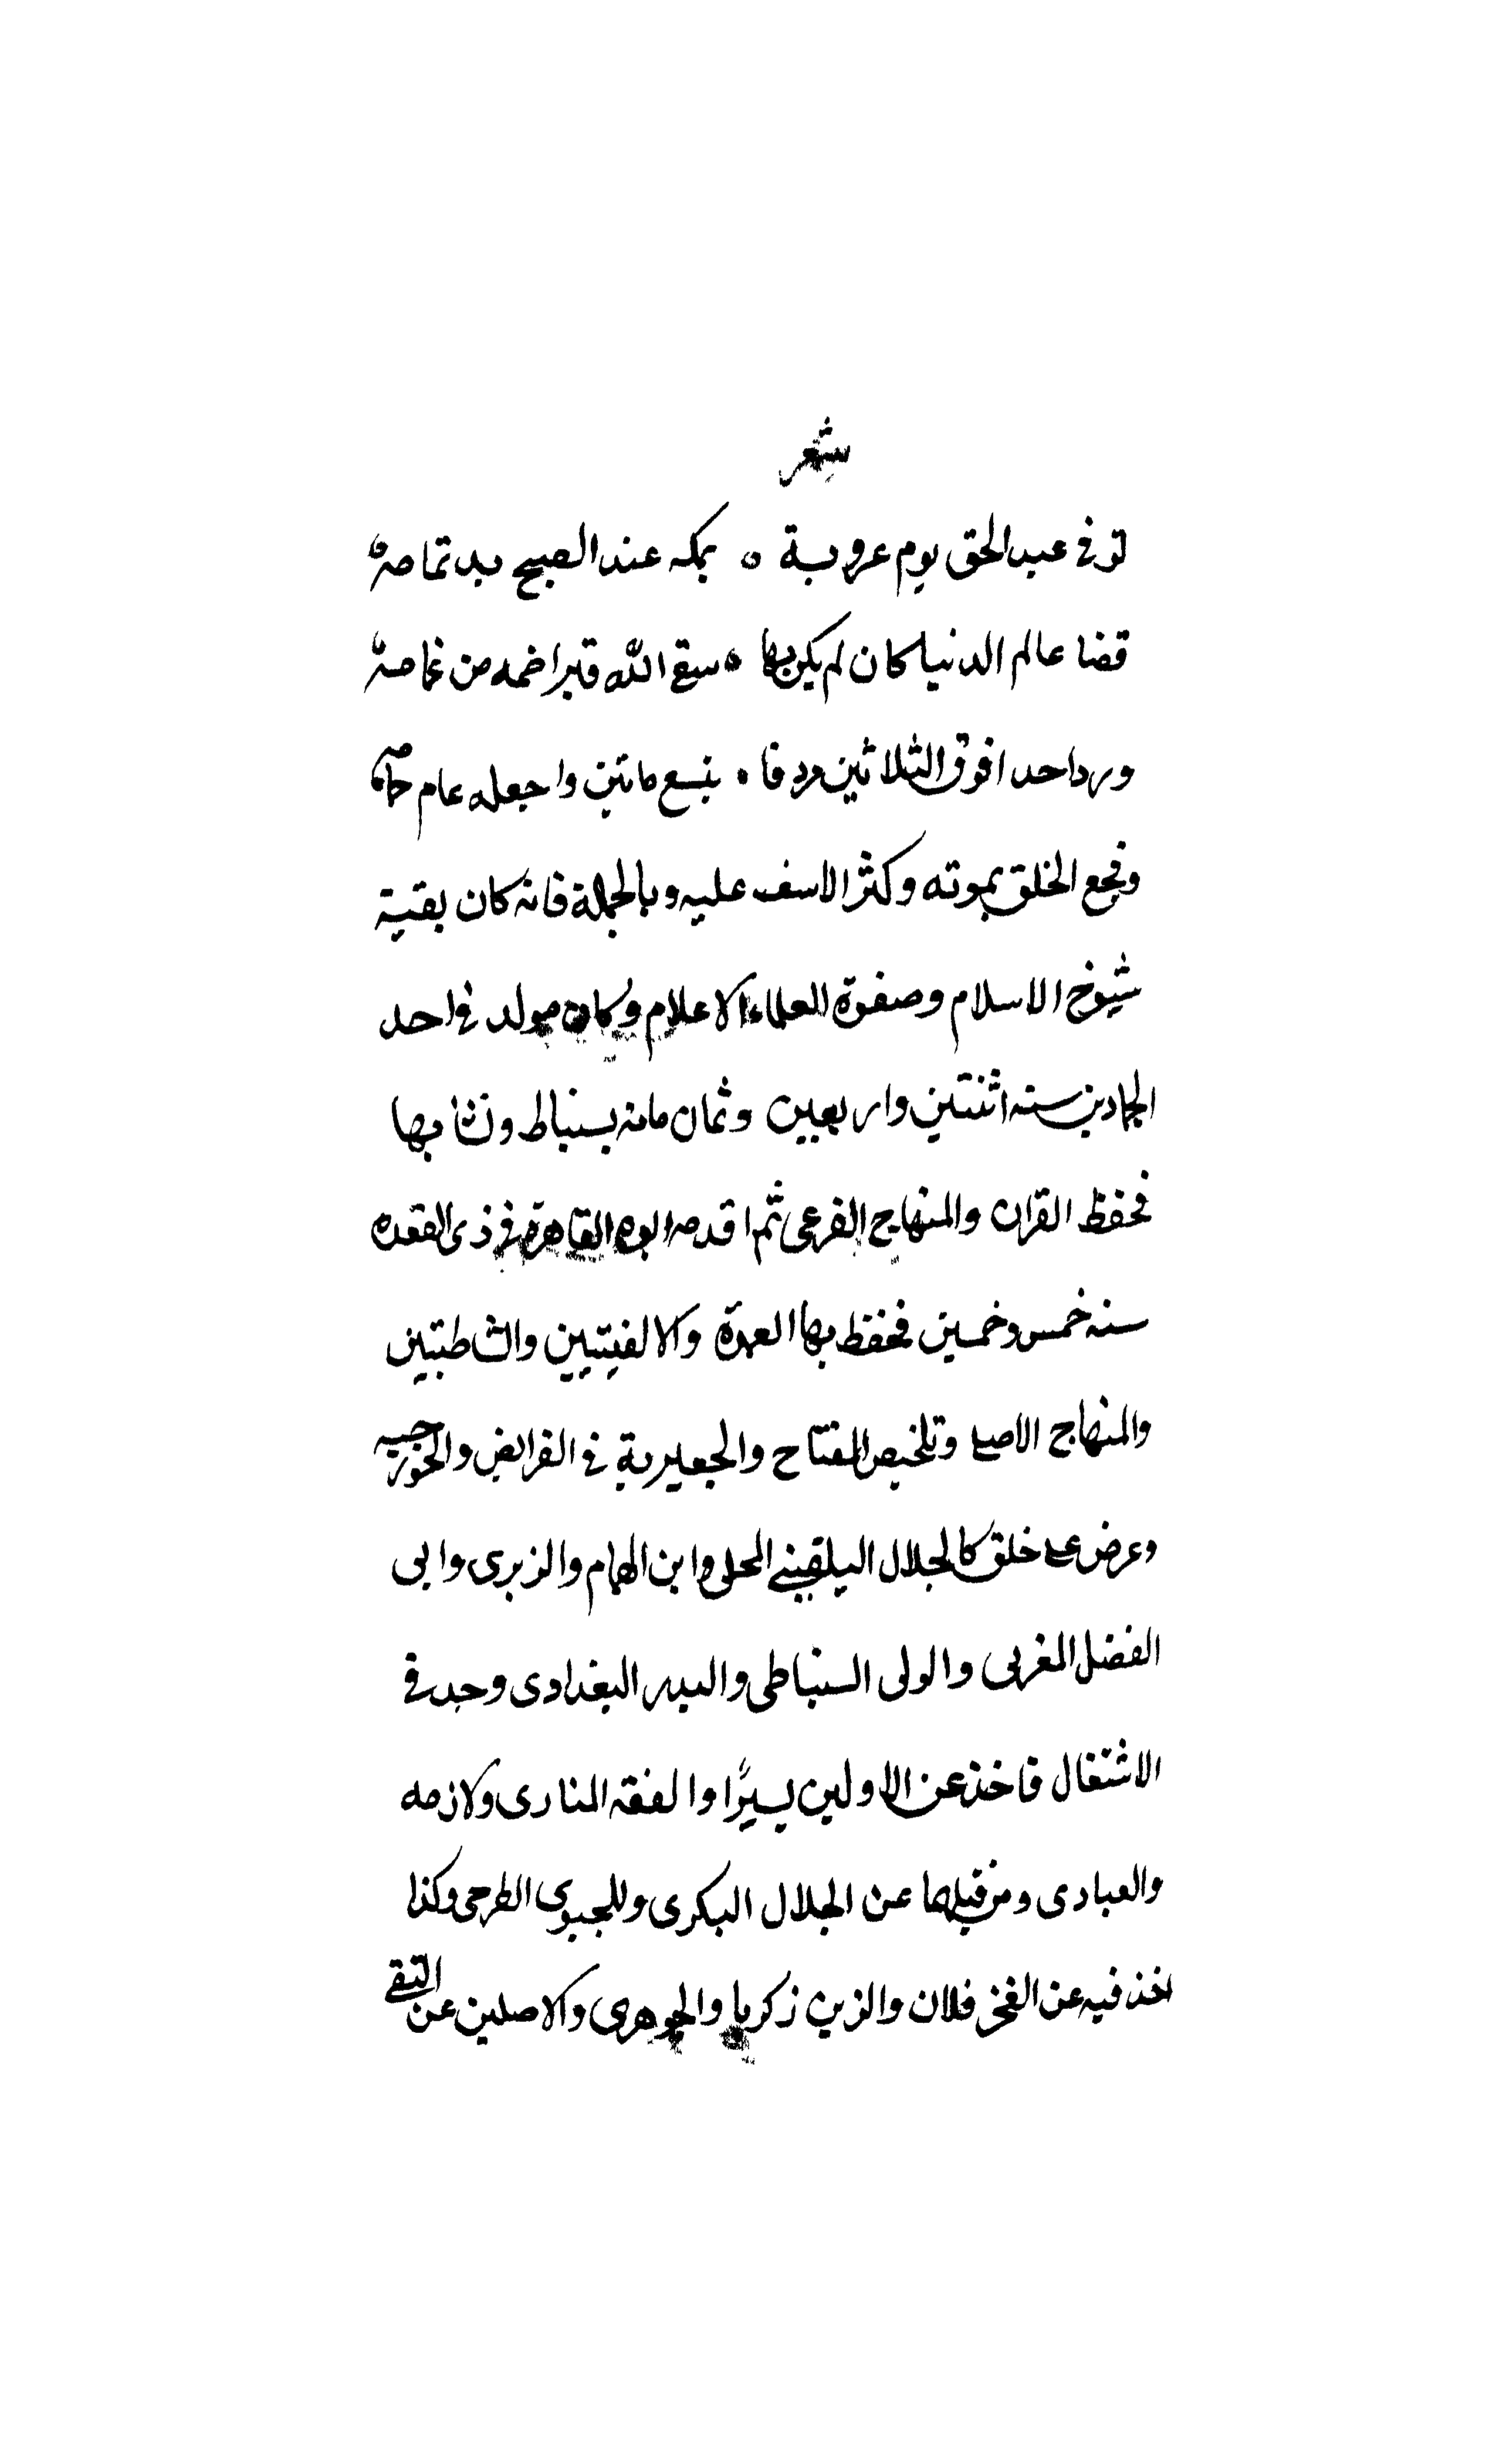 شعر
توفى عبد الحق يوم عروبة ٥ بمكه عند الصبح بدتمامه
قضا عالم الدنيا كان لم يكن بها ٥ سقى الله قبرا ضمه من غمامه
وزد احدا فوق الثلاثين مردفا ٠ بتسع ماتين واجعله عام حمامه
وفجع الخلق بموته وكثر الاسف عليه وبالجملة فانه كان بقية
شيوخ الاسلام وصفوة العلماء الاعلام وكان مولد في احد
الجمادين سنه اثنتين واربعين وثمان مائه بسنباط ونشا بها
فحفظ القران والمنهاج الفرعى ثم اقدمه ابوه القاهرة في ذى القعده
سنه خمس وخمسين فحفظ بها العمدة والالفيتين والشاطبتين
والمنهاج الاصلى وتلخيص المفتاح والجعبرية في الفرائض والخزرجيه
وعرض على خلق كالجلال البلقيني المحلى وابن الهمام والزبرى وابى
الفضل المغربى والولى السنباطى والبدر البغدادى وجد في
الاشتغال فاخذ عن الاولين يسيرًا والفقه المناوى ولازمه
والعبادى ومن قبلهما عن الجلال البكرى وللجبوى الطرحى وكذا
اخذ فيه عن الفخر فلان والزين زكريا والجوهرى والاصلين عن التقي